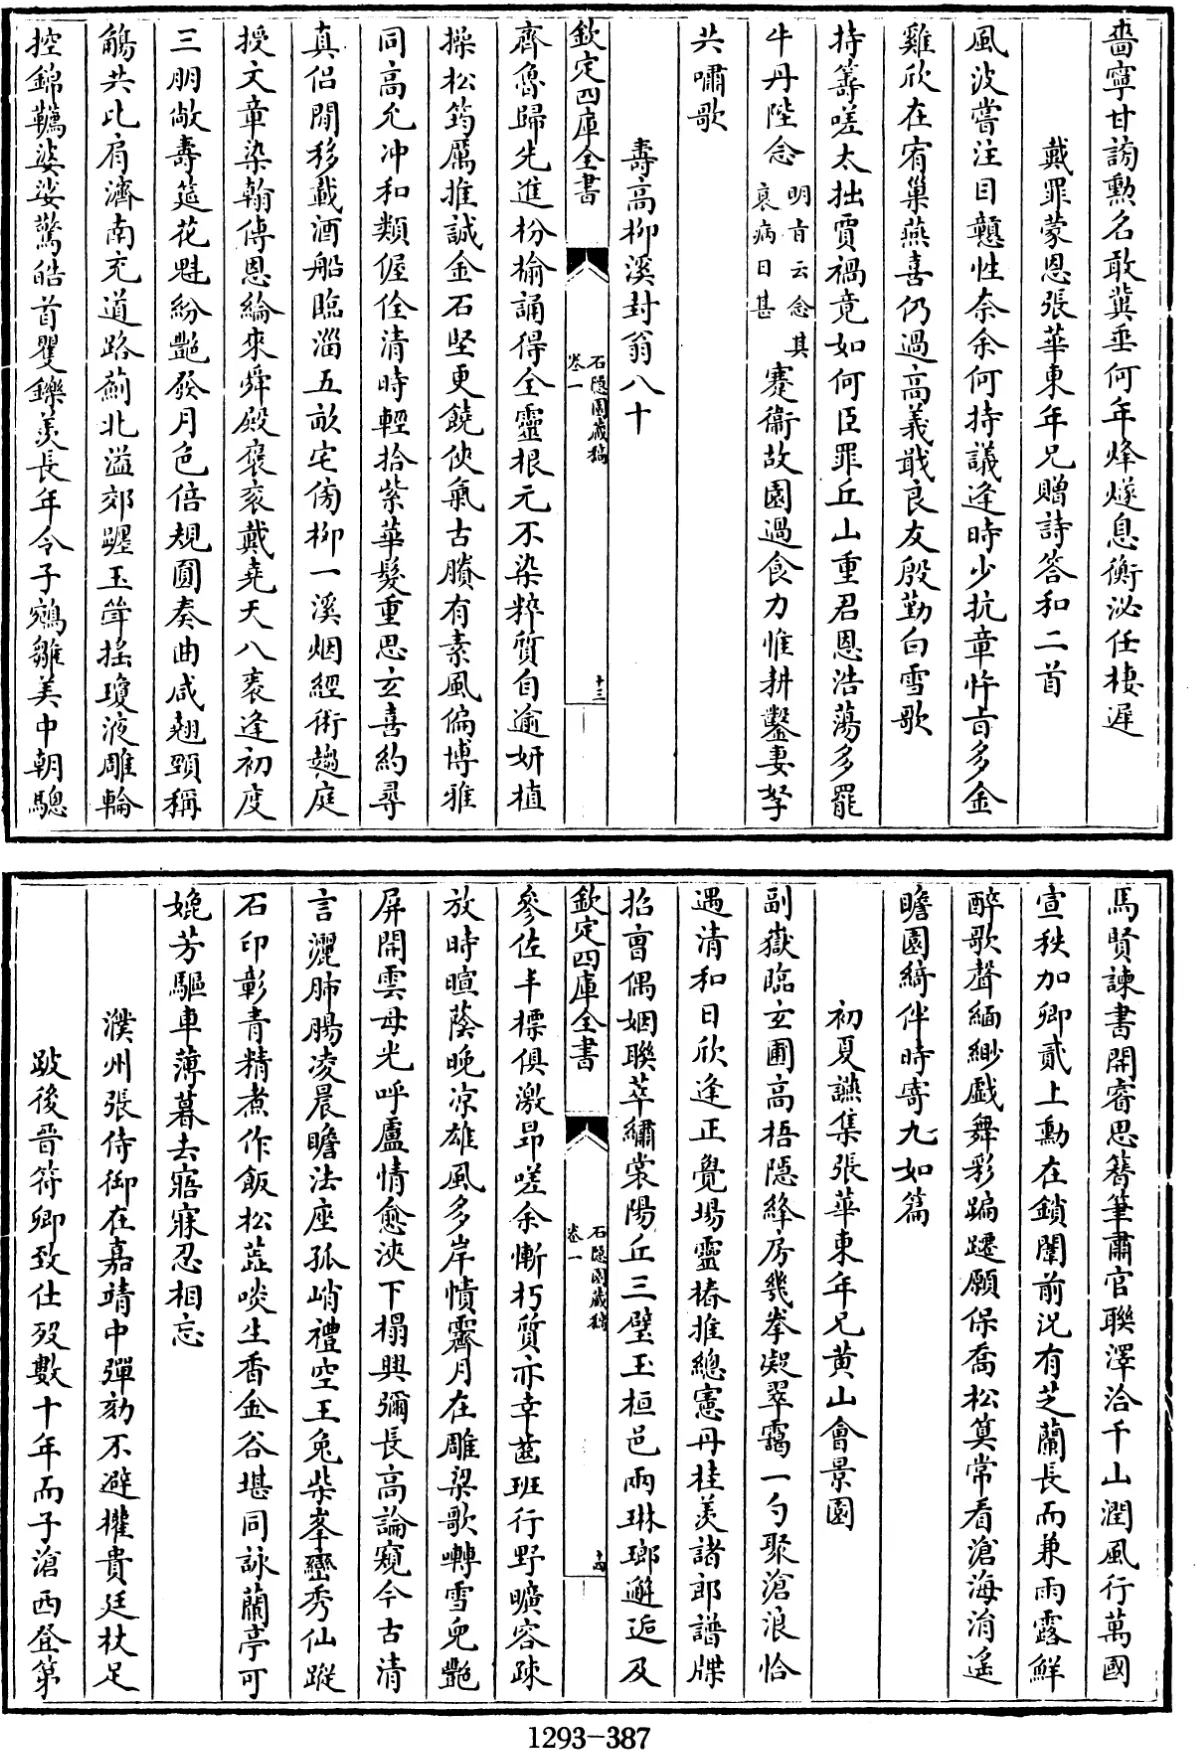 嗇寧甘謗勲名敢冀垂何年烽燧息衡泌任棲遲
戴罪蒙恩張華東年兄贈詩答和二首
風波嘗注目戇性奈余何持議逢時少抗章忤㫖多金
雞欣在宥巢燕喜仍過高義戢良友殷勤白雪歌
持籌嗟太拙賈禍竟如何臣罪丘山重君恩浩蕩多罷
牛丹陛念
明㫖云念其
衰病日甚
蹇衞故園過食力惟耕鑿妻孥
共嘯歌
壽高柳溪封翁八十
欽定四庫全書
石隱園藏稿
卷一
十三
齊魯歸先進枌榆誦得全靈根元不染粹質自逾妍植
操松筠厲推誠金石堅更饒俠氣古賸有素風偏博雅
同高允冲和類偓佺清時輕拾紫華髮重思玄喜約尋
真侣閒移載酒船臨淄五畝宅傍柳一溪烟經術趨庭
授文章染翰傳恩綸來舜殿襃衮戴堯天八袠逢初度
三朋敞壽筵花魁紛艶發月色倍規圓奏曲咸翹頸稱
觴共比肩濟南充道路薊北溢郊躔玉斝搖瓊液雕輪
控錦韉婆娑驚皓首矍鑠羨長年令子鵷雛美中朝驄
馬賢諫書開睿思簪筆肅官聯澤洽千山潤風行萬國
宣秩加卿貳上勳在鎖闈前況有芝蘭長而兼雨露鮮
醉歌聲緬緲戯舞彩蹁躚願保喬松算常看滄海涓遙
瞻園綺伴時寄九如篇
初夏讌集張華東年兄黄山會景園
副嶽臨玄圃高梧隱絳房幾拳凝翠靄一勺聚滄浪恰
遇清和日欣逢正覺場靈椿推總憲丹桂羨諸郎譜牒
招㑹偶姻聯萃繡裳陽丘三璧玉桓邑兩琳瑯邂逅及
欽定四庫全書
石隱園藏稿
卷一
十四
參佐丰標俱激昻嗟余慚朽質亦幸齒班行野曠容疎
放時暄蔭晚凉雄風多岸幘霽月在雕梁歌囀雪兒艷
屏開雲母光呼盧情愈浹下榻興彌長高論窺今古清
言灑肺腸凌晨瞻法座孤峭禮空王兔柴峯巒秀仙蹤
石印彰青精煮作飯松蕋啖生香金谷堪同詠蘭亭可
媲芳驅車薄暮去寤寐忍相忘
濮州張侍御在嘉靖中彈劾不避權貴廷杖足
跛後晉符卿致仕殁數十年而子滄西登第
1293-387